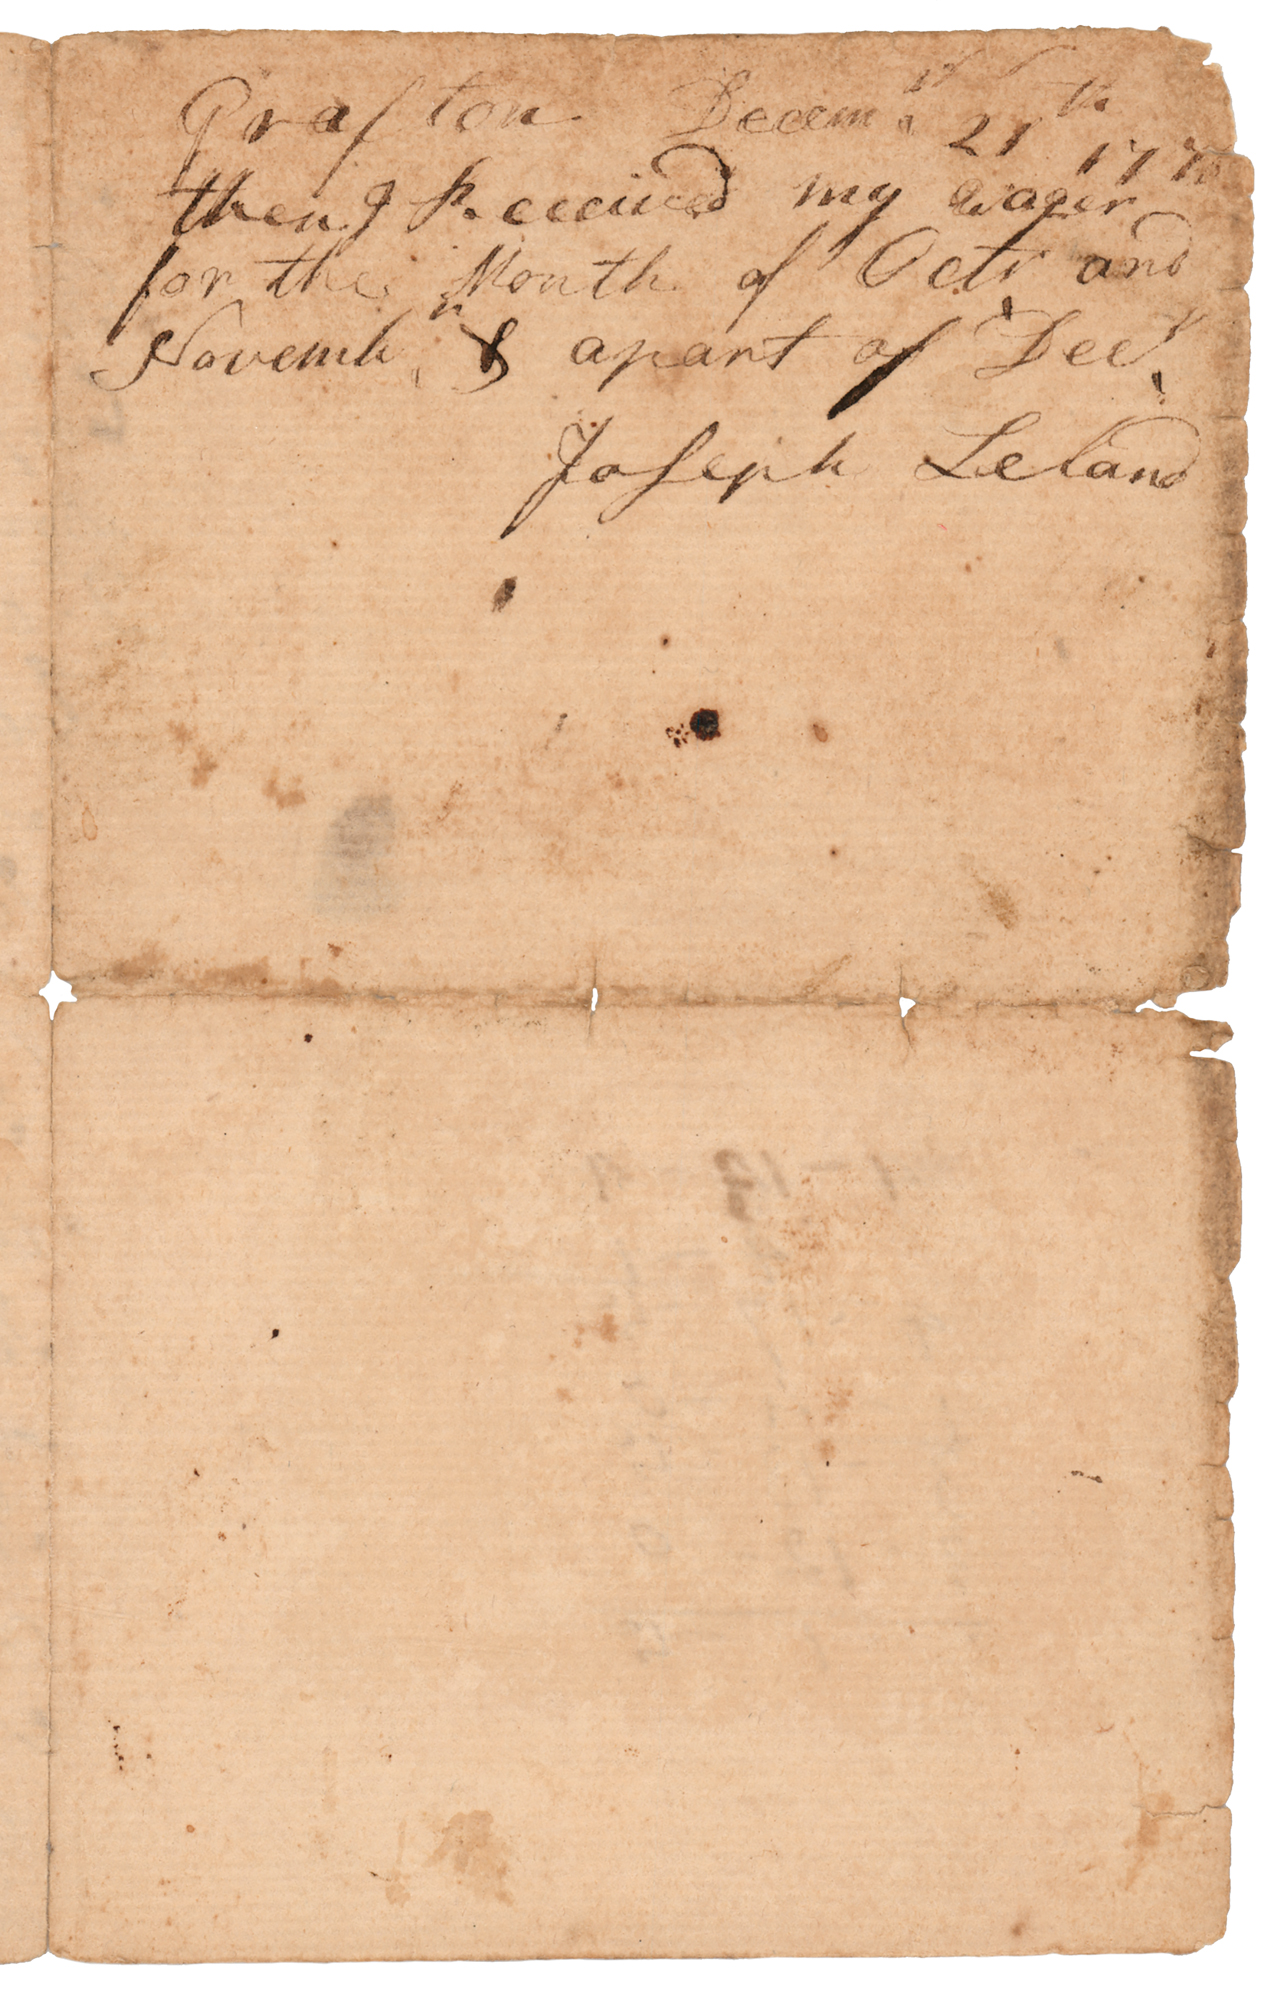 Grafton Decemr 21th 1776
then I Received my wages
for the Month of Octr and
Novembr & apart of Decr
Joseph Leland